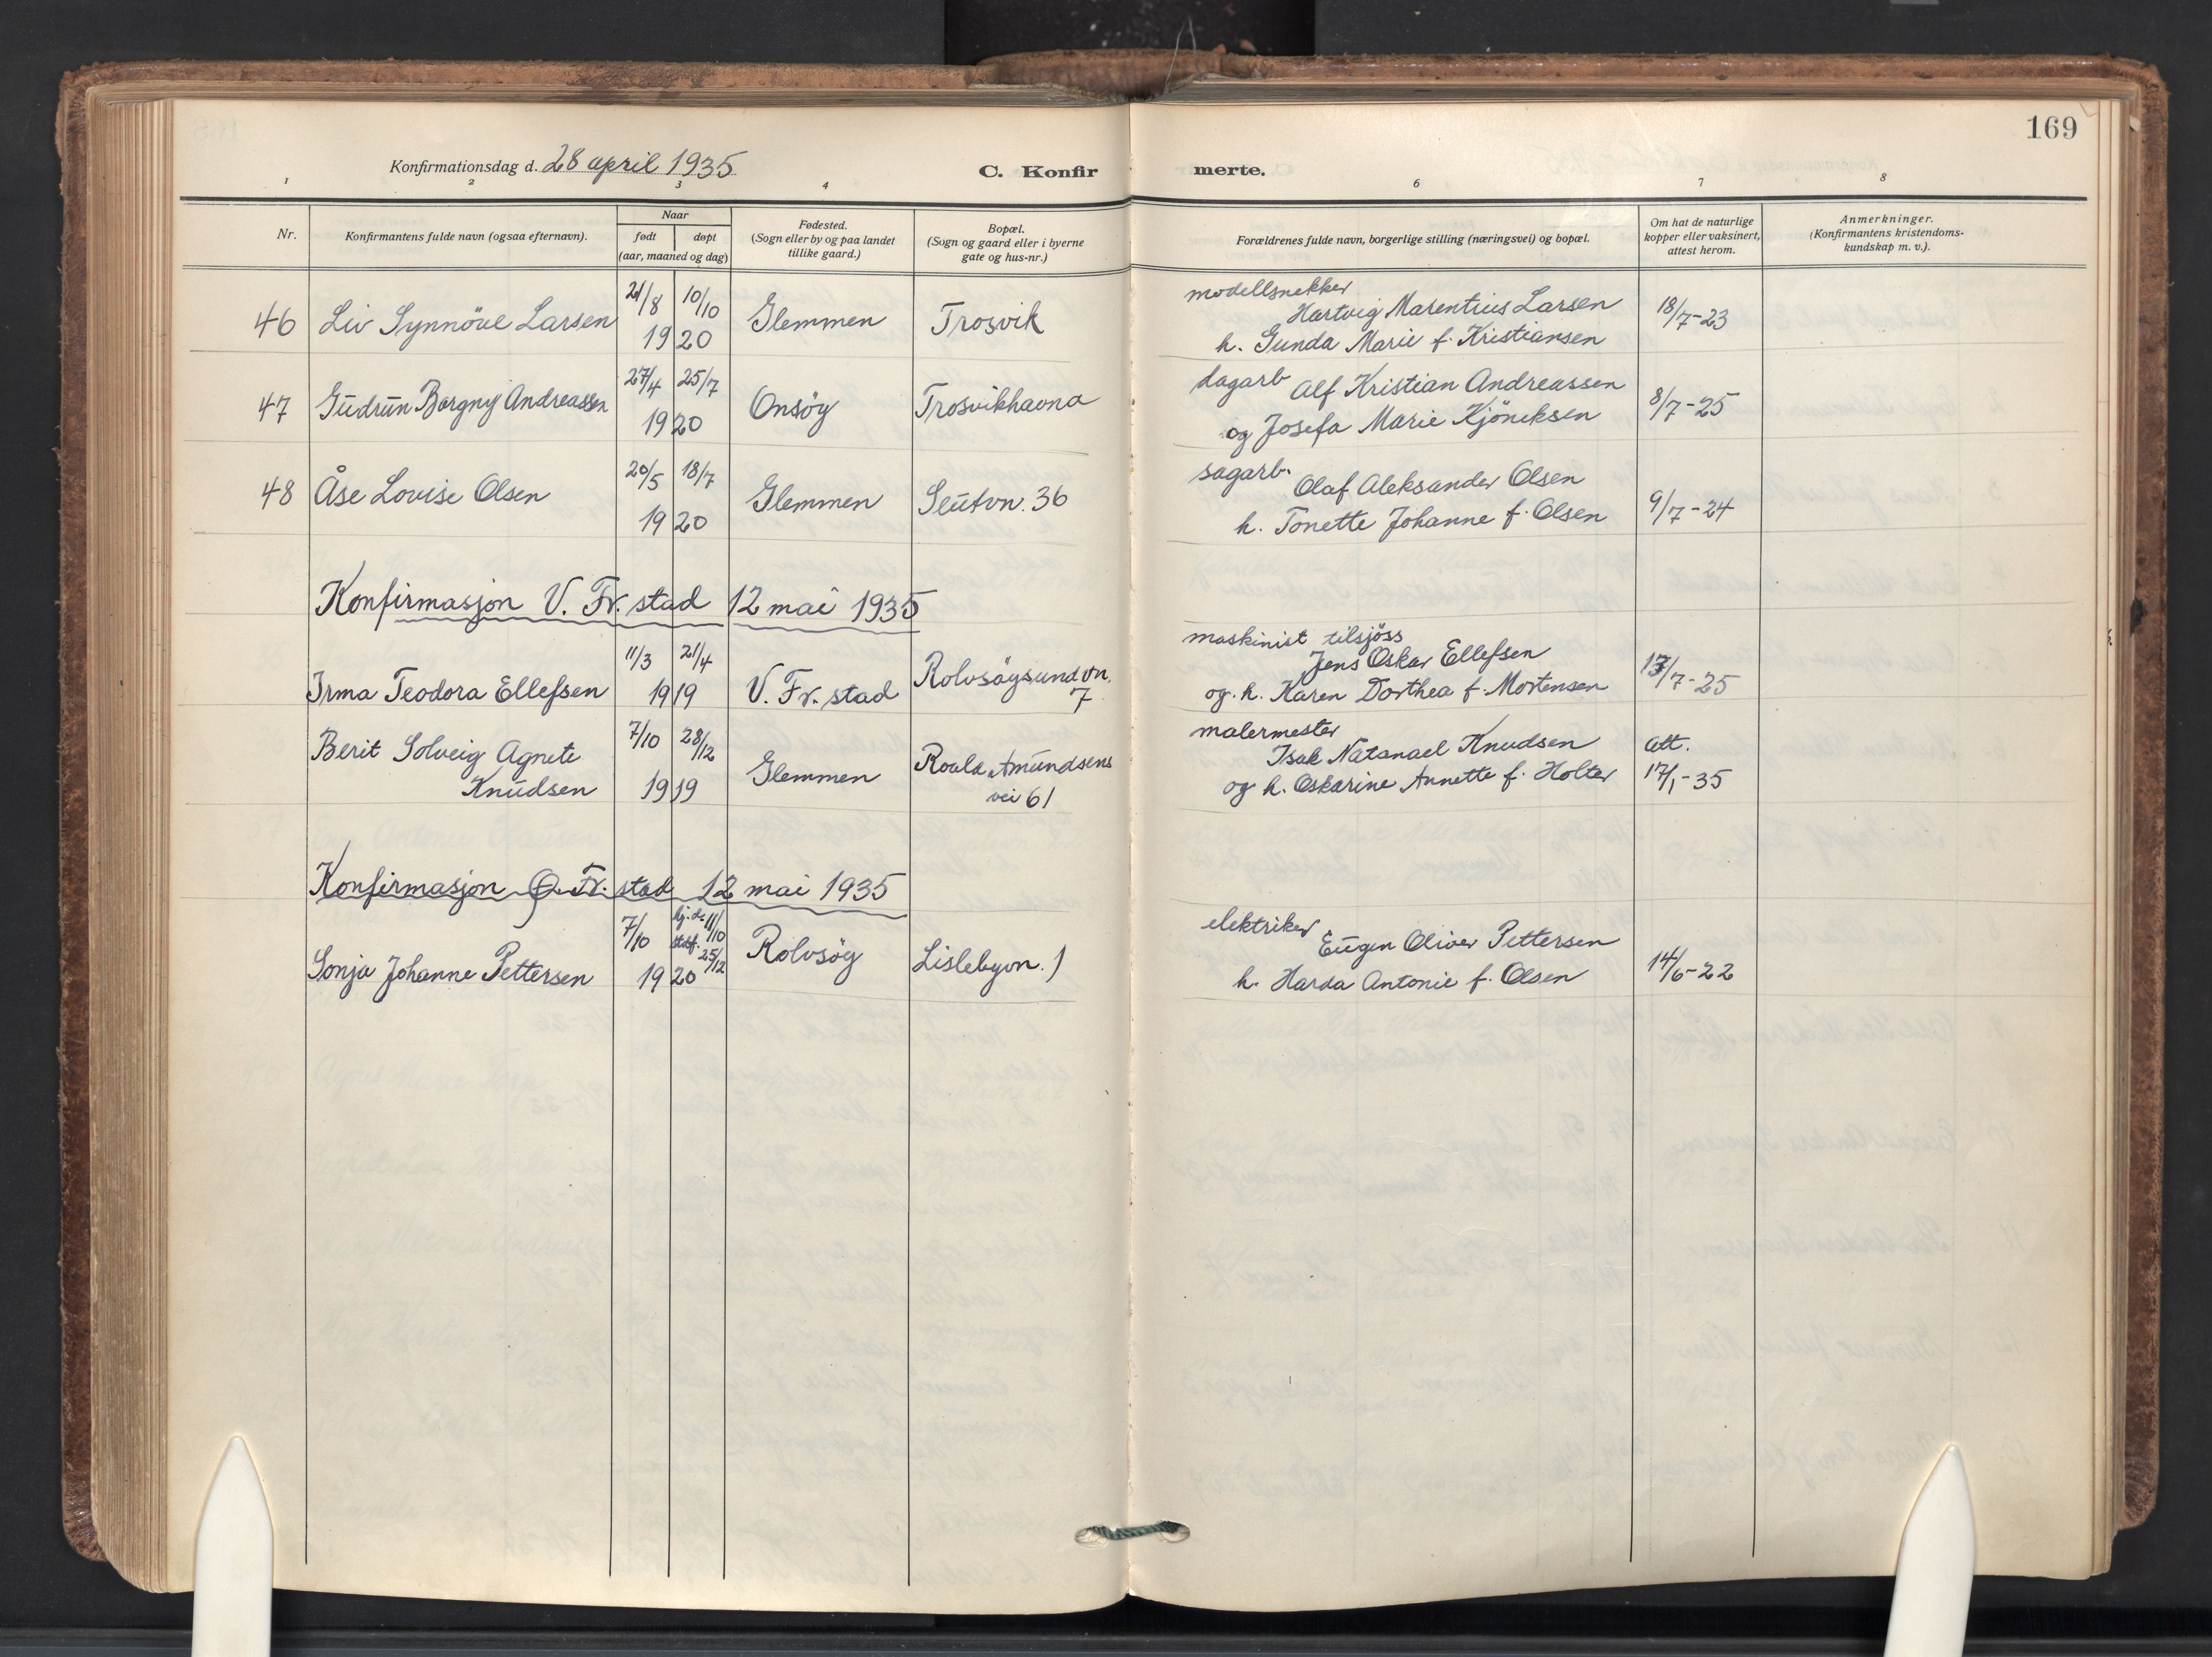 169
Konfirmationsdag d. 28 april 1935
C. Konfir merte.
1 2 3 4 6 7 8
Nr.
Konfirmantens fulde navn (ogsaa efternavn).
Naar
født døpt
(aar, maaned og dag)
Fødested.
(Sogn eller by og paa landet
tillike gaard.)
Bopæl.
(Sogn og gaard eller i byerne
gate og hus-nr.)
Forældrenes fulde navn, borgerlige stilling (næringsvei) og bopæl.
Om hat de naturlige
kopper eller vaksinert,
attest herom.
Anmerkninger.
(Konfirmantens kristendoms-
kundskap m. v.).
21/8 10/10 modellsnekker
46 Liv Synnöve Larsen Glemmen Trosvik Hartvig Marentius Larsen 18/7-23
1920 h. Gunda Marie f. Kristiansen
27/4 25/7 dagarb Alf Kristian Andreassen
47 Gudrun Borgny Andreassen Onsöy Trosvikhavna 8/7-25
1920 og Josefa Marie Kjöniksen
20/5 18/7 sagarb. Olaf Aleksander Olsen
48 Åse Lovise Olsen Glemmen Seutvn. 36 9/7-24
1920 h. Tonette Johanne f. Olsen
Konfirmasjon V. Fr. stad 12 mai 1935
11/3 21/4 maskinist tilsjöss
Jens Oskar Ellefsen
Irma Teodora Ellefsen 1919 V. Fr. stad Rolvsöysundvn. 7 og h. Karen Dorthea f. Mortensen 13/7-25
7/10 28/12 malermester
Berit Solveig Agnete Glemmen Roald Amundsens Isak Natanael Knudsen att.
Knudsen 1919 vei 61 og h. Oskarine Annette f. Holter 17/1-35
Konfirmasjon Ö. Fr. stad 12 mai 1935
7/10 hj. d. 11/10 elektriker
stadf. 25/12 Rolvsöy Eugen Oliver Pettersen
Sonja Johanne Pettersen 1920 Lislebyvn. 1 h. Harda Antonie f. Olsen 14/6-22